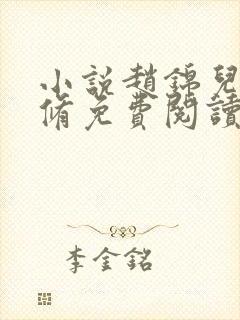 小說趙錦兒
脩免費閱讀
李金銘